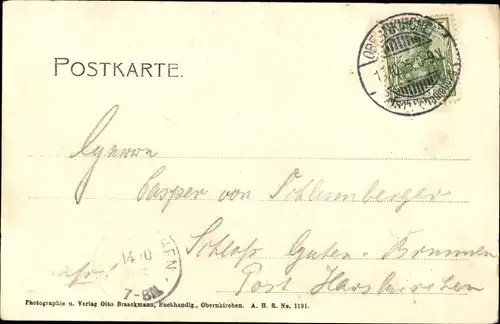 POSTKARTE.
OBERNKIRCHEN
Casper von Schlumberger
Schloß Guten-Brunnen
Post Harskirchen
14 10
7-8N
Photographie u. Verlag Otto Braackmann, Buchhandlg., Obernkirchen. A. H. R. No. 1191.